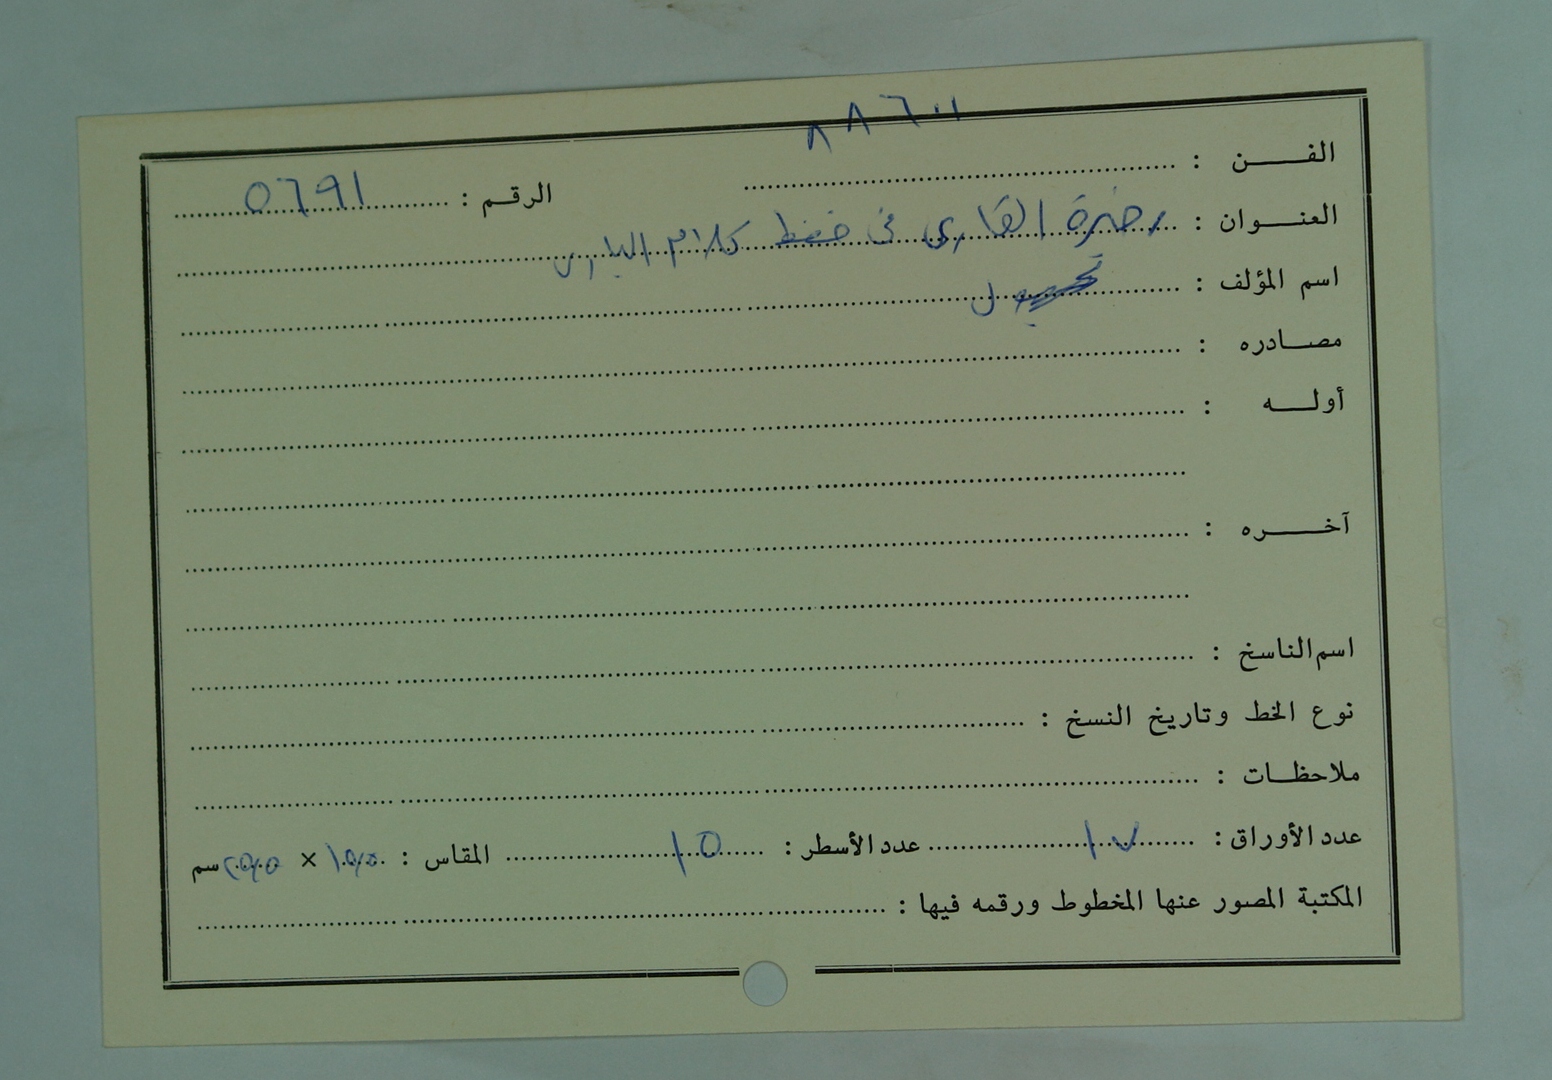 الفــن :
الرقم : ٥٦٩١
العنــوان : القاري في حفظ كلام الباري
اسم المؤلف :
مصــادره :
أولــه :
آخــره :
اسم الناسخ :
نوع الخط وتاريخ النسخ :
ملاحظــات :
عدد الأوراق : ١٧ عدد الأسطر : ١٥ المقاس : × سم
المكتبة المصور عنها المخطوط ورقمه فيها :